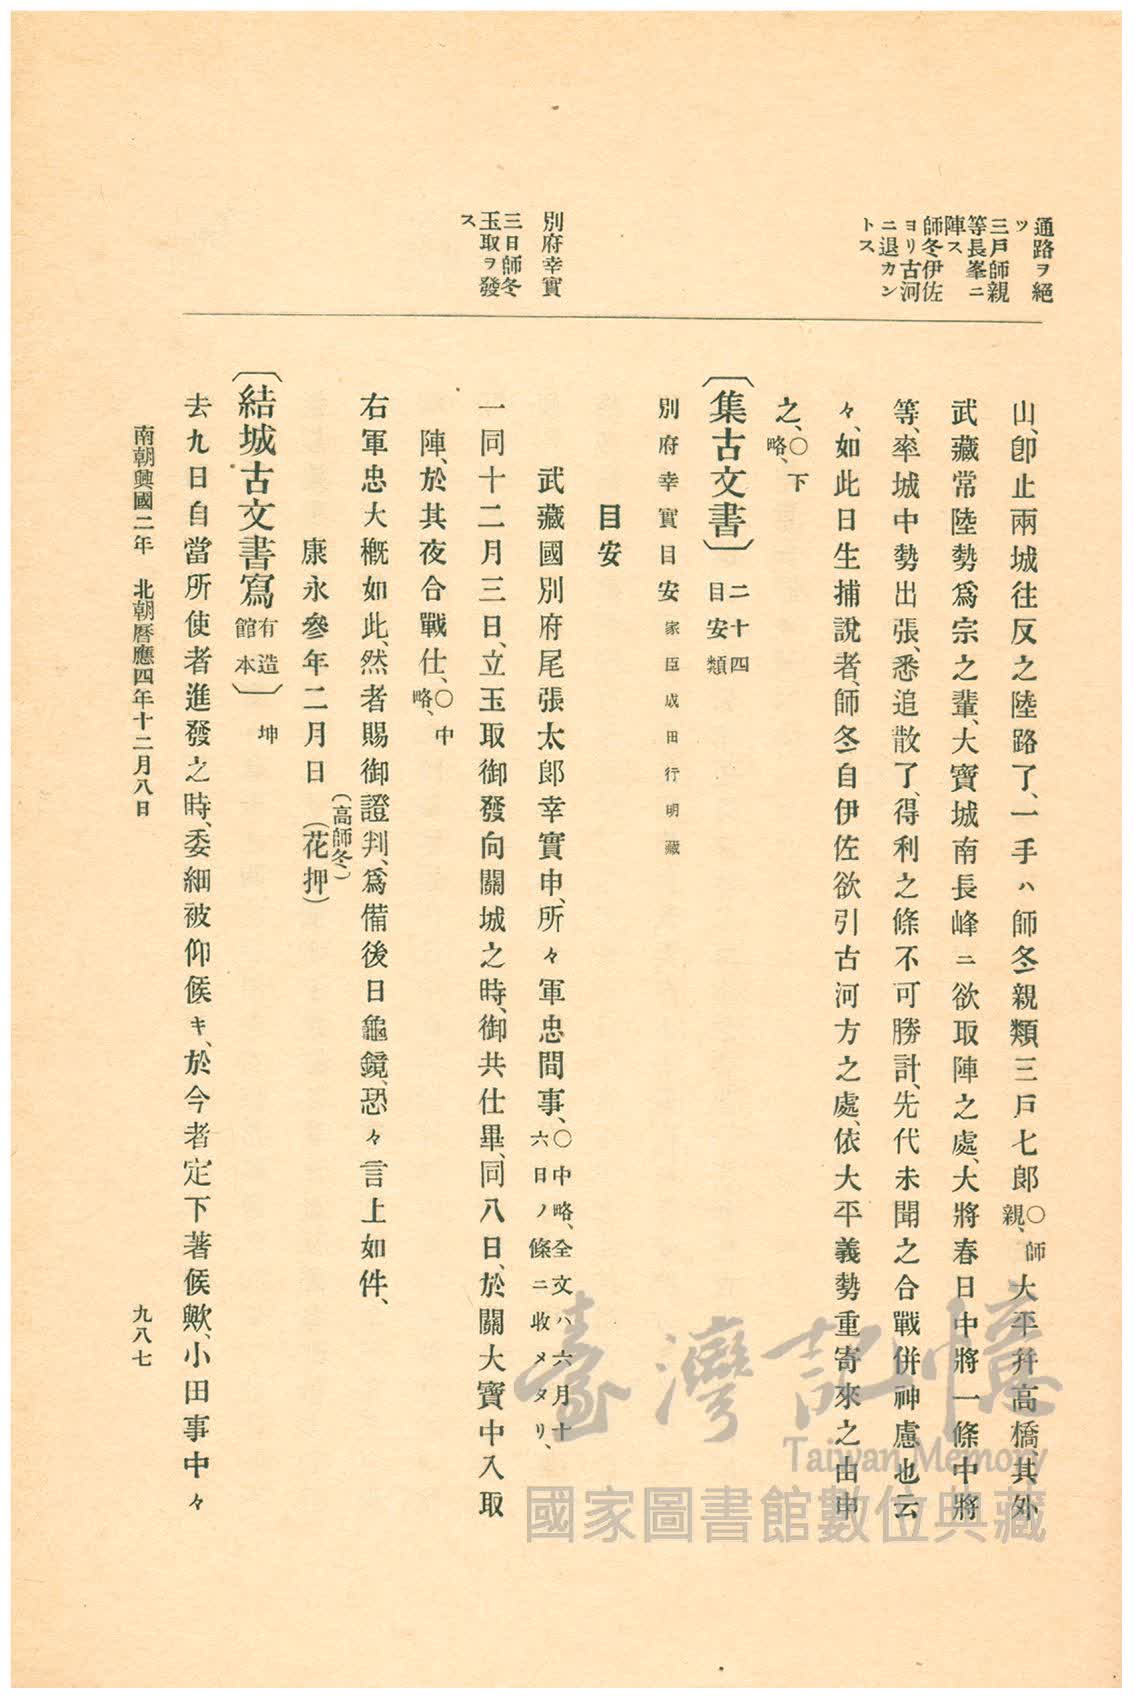 通路ヲ絕
ツ
三戶師親
等長峯ニ
陣ス
師冬伊佐
ヨリ古河
ニ退カン
トス
別府幸實
三日師冬
玉取ヲ發
ス
山、卽止兩城往反之陸路了、一手ハ師冬親類三戶七郞〇師親、大平幷高橋、其外
武藏常陸勢爲宗之輩、大寶城南長峰ニ欲取陣之處、大將春日中將一條中將
等、率城中勢出張、悉追散了、得利之條不可勝計、先代未聞之合戰併神慮也云
々、如此日生捕說者、師冬自伊佐欲引古河方之處、依大平義勢重寄來之由申
之、〇下略、
〔集古文書〕二十四目安類
別府幸實目安家臣成田行明藏
目安
武藏國別府尾張太郞幸實申、所々軍忠間事、〇中略、全文ハ六月十六日ノ條ニ收メタリ、
一同十二月三日、立玉取御發向關城之時、御共仕畢、同八日、於關大寶中入取
陣、於其夜合戰仕、〇中略、
右軍忠大槪如此、然者賜御證判、爲備後日龜鏡、恐々言上如件、
康永參年二月日
(高師冬)
(花押)
〔結城古文書寫有造館本〕坤
去九日自當所使者進發之時、委細被仰候キ、於今者定下著候歟、小田事中々
南朝興國二年 北朝曆應四年十二月八日
九八七
臺灣記憶
Taiwan Memory
國家圖書館數位典藏